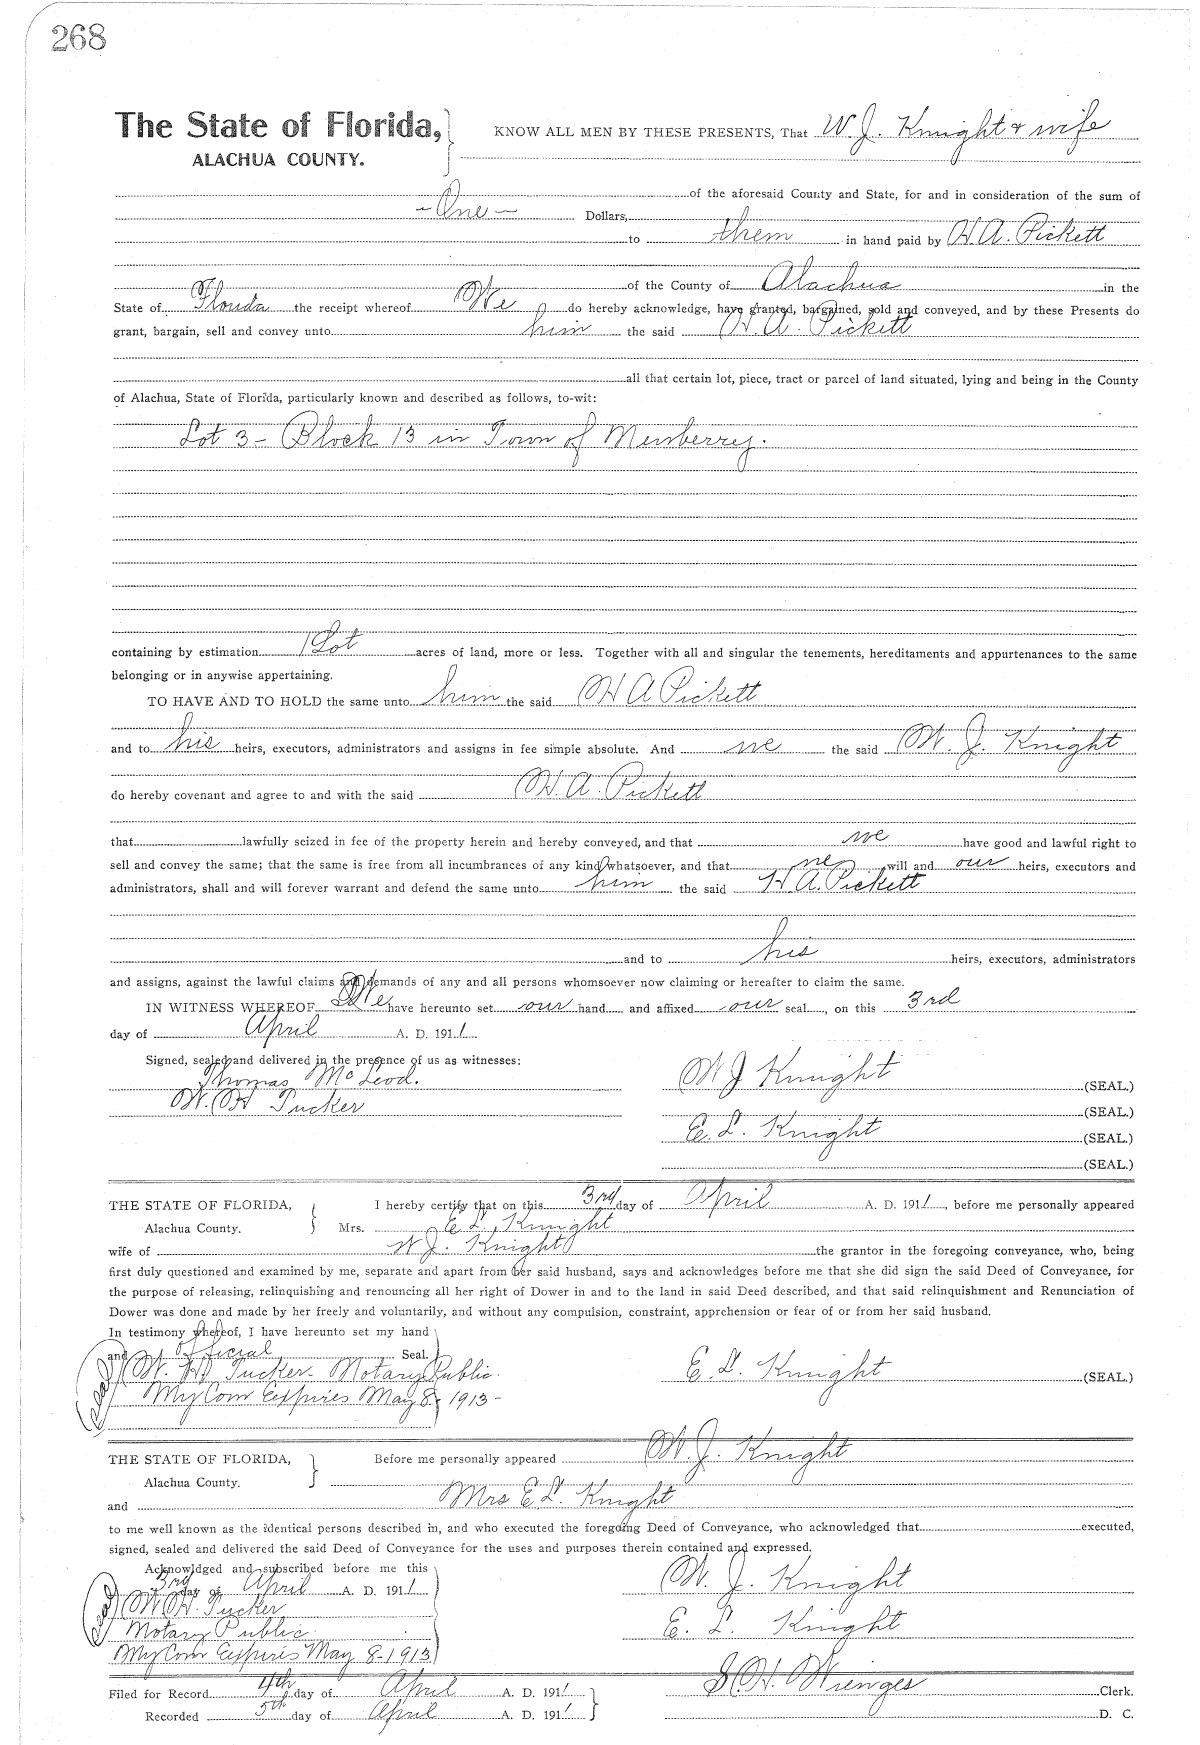 268
The State of Florida,
ALACHUA COUNTY.
KNOW ALL MEN BY THESE PRESENTS, That W. J. Knight & wife
of the aforesaid County and State, for and in consideration of the sum of
- One - Dollars,
to them in hand paid by H. A. Pickett
of the County of Alachua in the
State of Florida the receipt whereof We do hereby acknowledge, have granted, bargained, sold and conveyed, and by these Presents do
grant, bargain, sell and convey unto him the said H. A. Pickett
all that certain lot, piece, tract or parcel of land situated, lying and being in the County
of Alachua, State of Florida, particularly known and described as follows, to-wit:
Lot 3 - Block 13 in Town of Newberry.
containing by estimation 1 Lot acres of land, more or less. Together with all and singular the tenements, hereditaments and appurtenances to the same
belonging or in anywise appertaining.
TO HAVE AND TO HOLD the same unto him the said H A Pickett
and to his heirs, executors, administrators and assigns in fee simple absolute. And we the said W. J. Knight
do hereby covenant and agree to and with the said H. A. Pickett
that lawfully seized in fee of the property herein and hereby conveyed, and that we have good and lawful right to
sell and convey the same; that the same is free from all incumbrances of any kind whatsoever, and that we will and our heirs, executors and
administrators, shall and will forever warrant and defend the same unto him the said H. A. Pickett
and to his heirs, executors, administrators
and assigns, against the lawful claims and demands of any and all persons whomsoever now claiming or hereafter to claim the same.
IN WITNESS WHEREOF We have hereunto set our hand and affixed our seal, on this 3rd
day of April A. D. 1911
Signed, sealed and delivered in the presence of us as witnesses:
Thomas McLeod. W J Knight (SEAL.)
W. H Tucker (SEAL.)
E. L. Knight (SEAL.)
(SEAL.)
THE STATE OF FLORIDA, I hereby certify that on this 3rd day of April A. D. 1911, before me personally appeared
Alachua County. Mrs. E L. Knight
wife of W J. Knight the grantor in the foregoing conveyance, who, being
first duly questioned and examined by me, separate and apart from her said husband, says and acknowledges before me that she did sign the said Deed of Conveyance, for
the purpose of releasing, relinquishing and renouncing all her right of Dower in and to the land in said Deed described, and that said relinquishment and Renunciation of
Dower was done and made by her freely and voluntarily, and without any compulsion, constraint, apprehension or fear of or from her said husband.
In testimony whereof, I have hereunto set my hand
and official Seal.
(Seal) W. H Tucker - Notary Public. E. L. Knight (SEAL.)
My Com Expires May 8 - 1913 -
THE STATE OF FLORIDA, Before me personally appeared W. J. Knight
Alachua County.
and Mrs E L. Knight
to me well known as the identical persons described in, and who executed the foregoing Deed of Conveyance, who acknowledged that executed,
signed, sealed and delivered the said Deed of Conveyance for the uses and purposes therein contained and expressed.
Acknowldged and subscribed before me this
3rd day of April A. D. 1911 W. J. Knight
(Seal) W H. Tucker
Notary Public. E. L. Knight
My Com Expires May 8 - 1913
Filed for Record 4th day of April A. D. 1911 S. H. Wienges Clerk.
Recorded 5th day of April A. D. 1911 D. C.